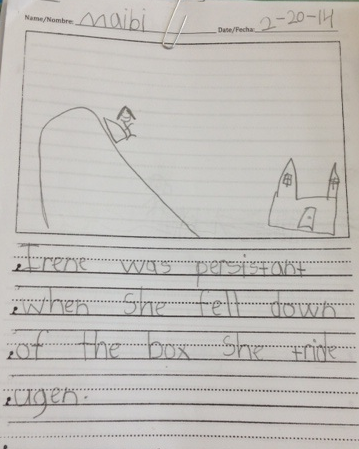 Name/Nombre: Maibi Date/Fecha: 2-20-14
Irene was persistant
when she fell down
of the box she tride
ugen.